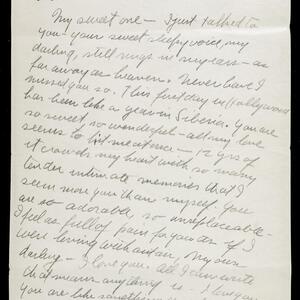 My sweet one — I just talked to
you — your sweet sleepy voice, my
darling, still rings in my ears — as
far away as heaven. Never have I
missed you so. This first day in Hollywood
has been like a year in Siberia. You are
so sweet, so wonderful — all my love
seems to hit me at once — 12 yrs of
it crowds my heart with so many
tender intimate memories that I
seem more you than myself. You
are so adorable, so irreplaceable —
I feel as full of pain for you as if I
were living without an, My own
darling — I love you. All I can write
that means anything is — I love you
You are like something